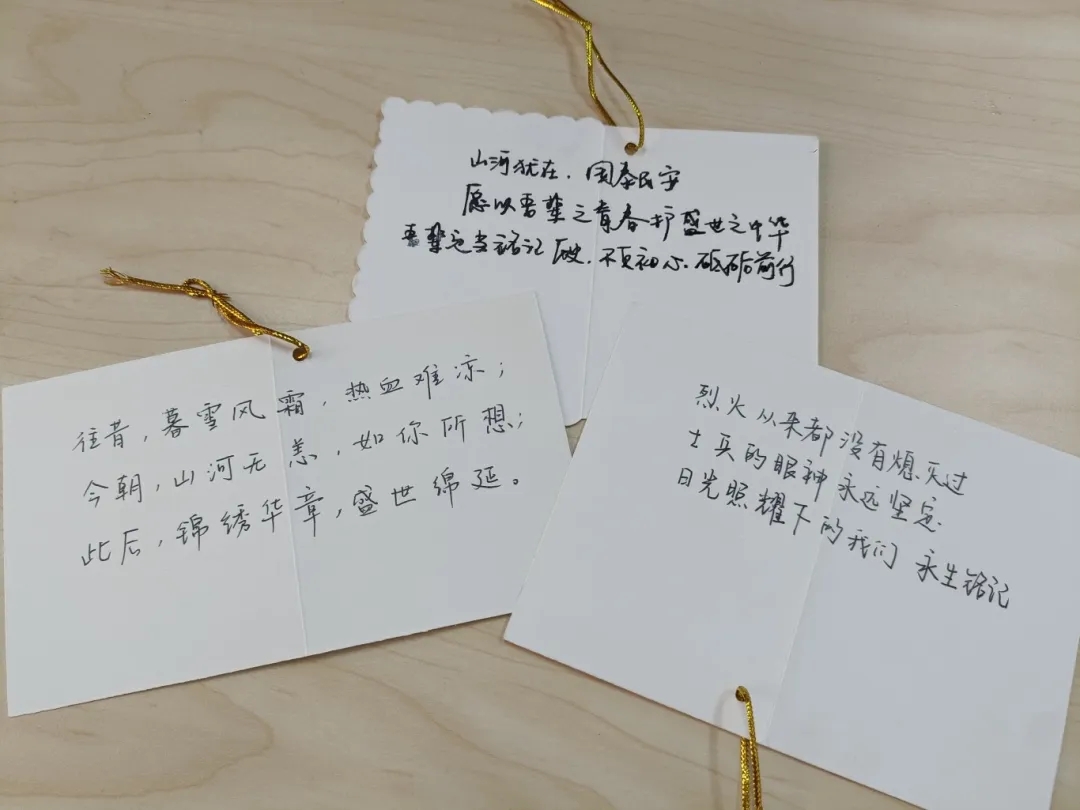 山河犹在，国泰民安
愿以吾辈之青春护盛世之中华
吾辈定当铭记历史，不负初心，砥砺前行
往昔，暮雪风霜，热血难凉；
今朝，山河无恙，如你所想；
此后，锦绣华章，盛世绵延。
烈火从来都没有熄灭过
士兵的眼神永远坚定
日光照耀下的我们 永生铭记